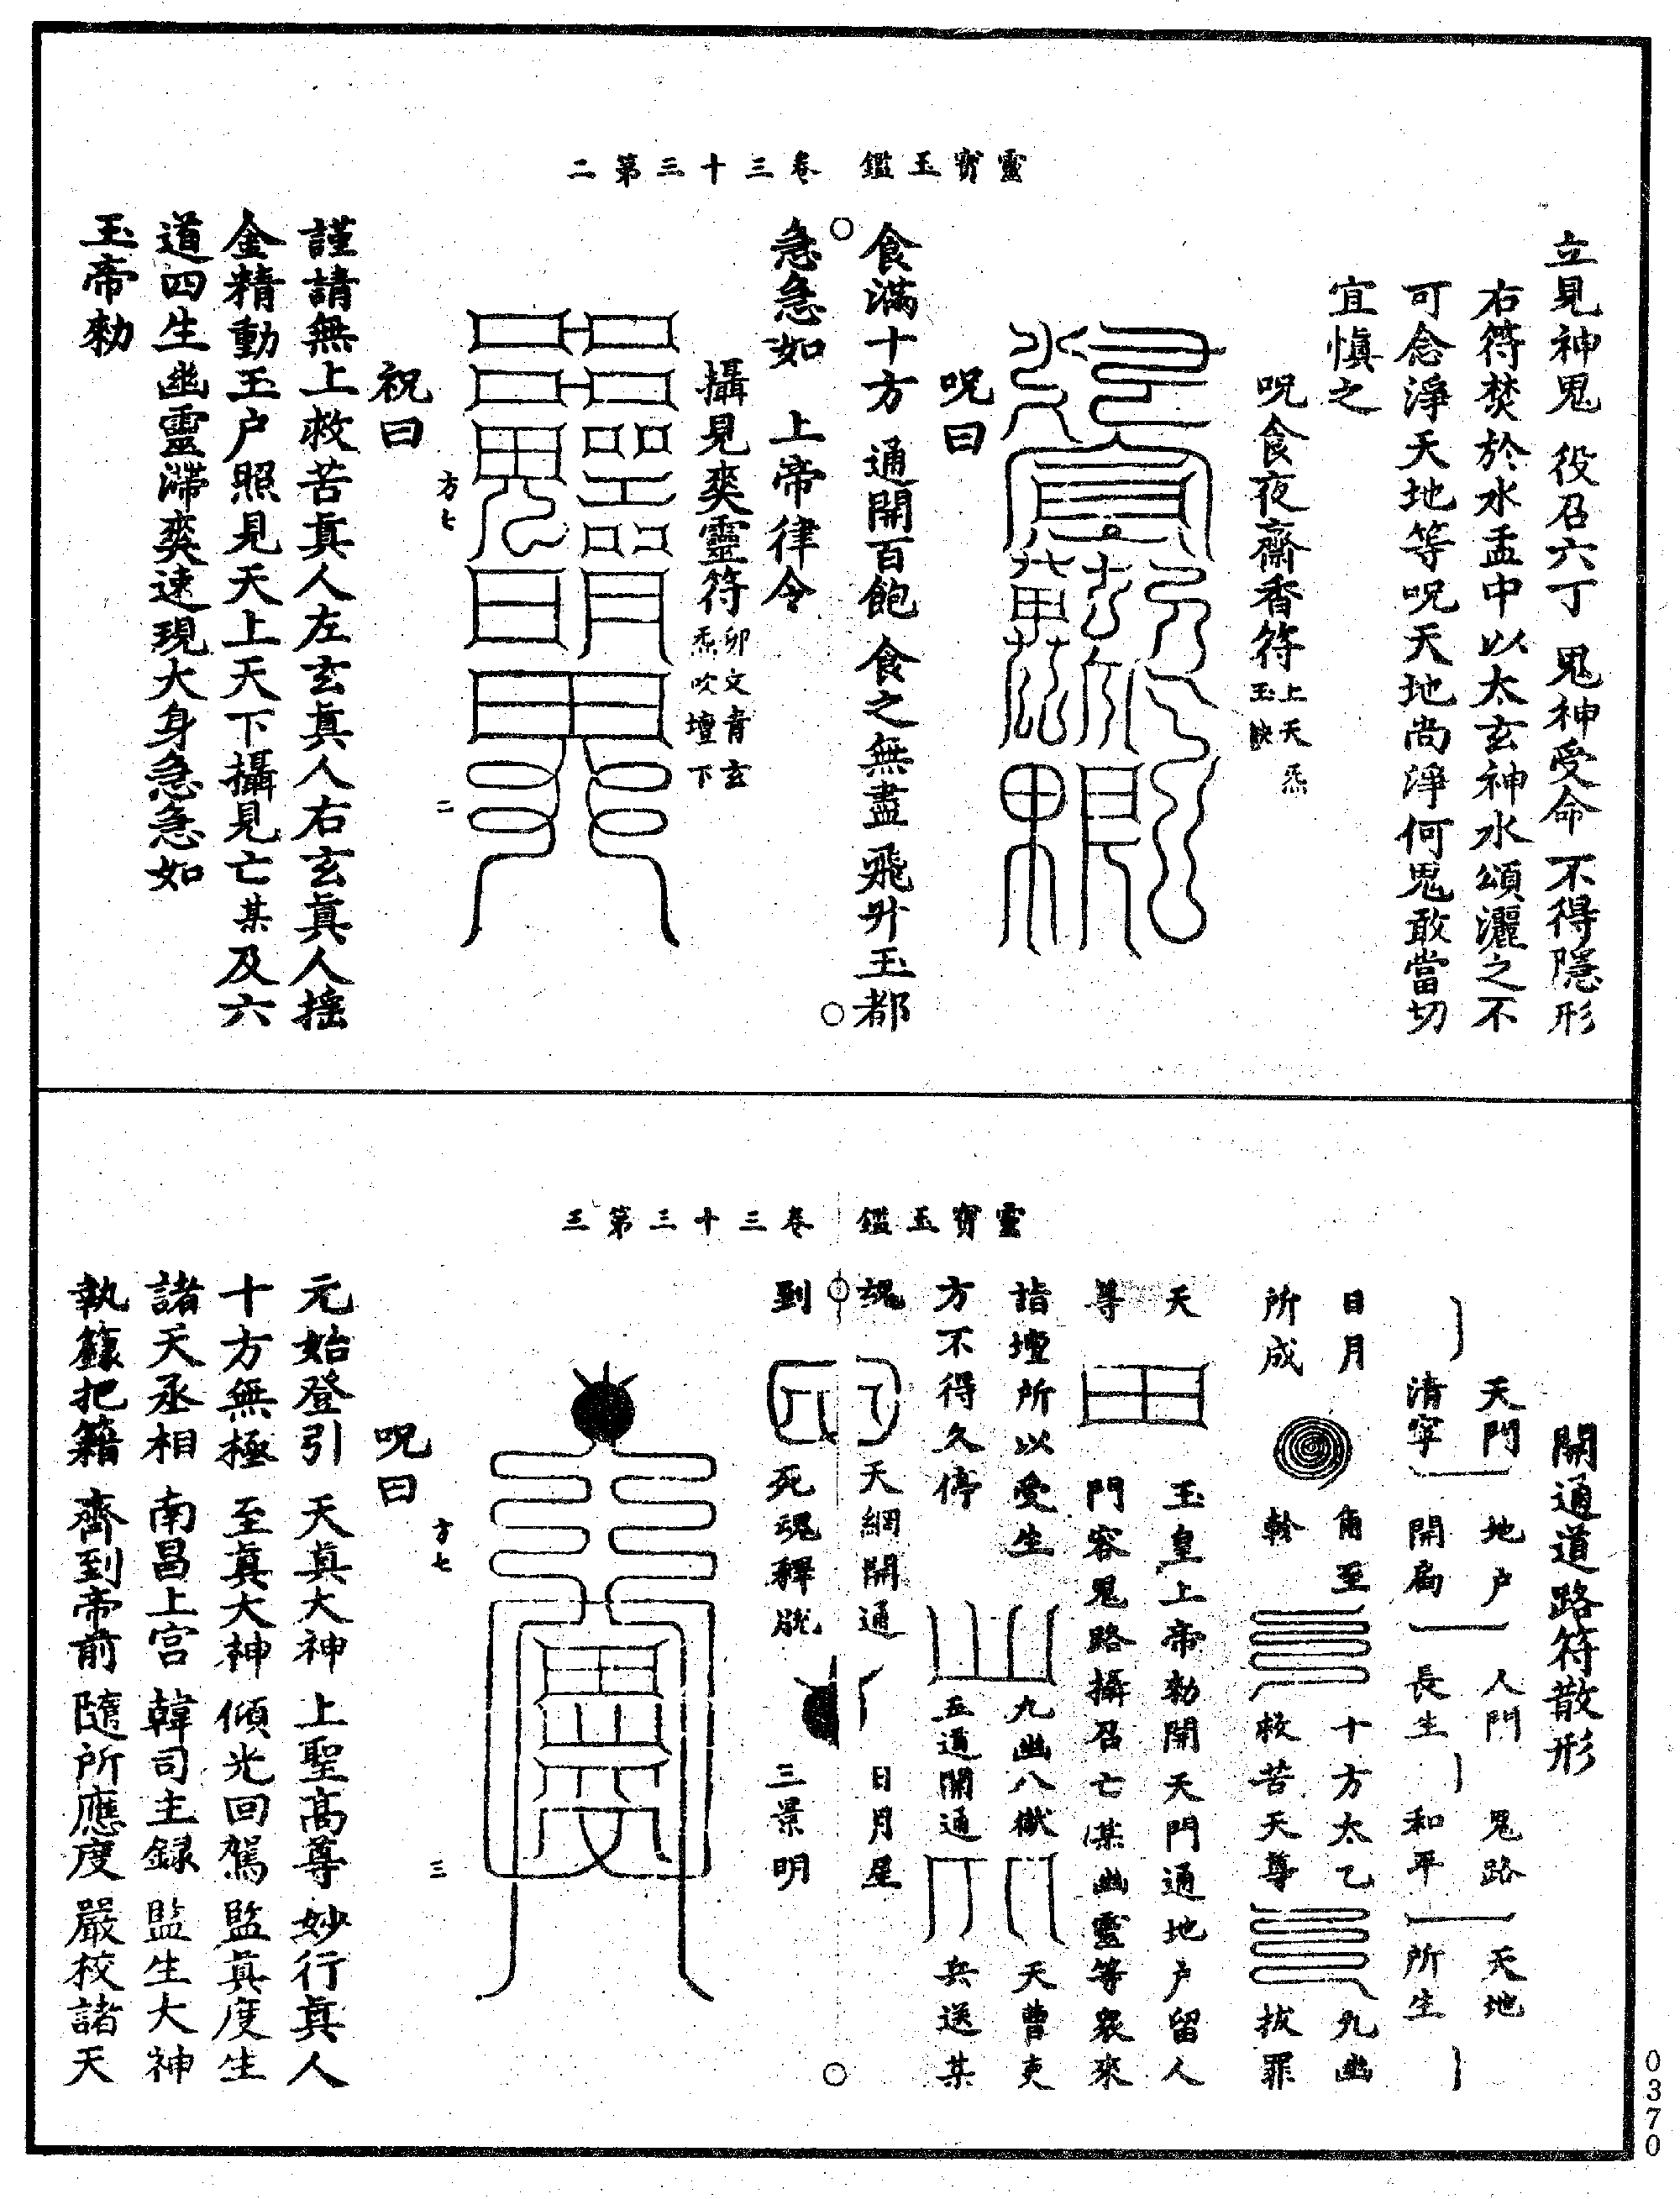 靈寶玉鑑　卷三十三第二
立見神鬼　役召六丁　鬼神受命　不得隱形
右符焚於水盂中以太玄神水頌灑之不
可念淨天地等呪天地尚淨何鬼敢當切
宜慎之
呪食夜齋香符上天炁玉訣
呪曰
食滿十方　通開百飽　食之無盡　飛昇玉都
急急如　上帝律令
攝見爽靈符卯文青玄炁吹壇下
方七　二
祝曰
謹請無上救苦真人左玄真人右玄真人搖
金精動玉户照見天上天下攝見亡某及六
道四生幽靈滯爽速現大身急急如
玉帝勑
靈寶玉鑑　卷三十三第三
開通道路符散形
天門清寧　地户開扃　人門長生　鬼路和平　天地所生
日月所成　角至軫　十方太乙救苦天尊　九幽拔罪
天尊　玉皇上帝勑開天門通地户留人門容鬼路攝召亡某幽靈等衆來
詣壇所以受生方不得久停　九幽八獄五道開通　天曹吏兵送某
魂到　天網開通死魂釋脫　日月星三景明
方七　三
呪曰
元始登引　天真大神　上聖高尊　妙行真人
十方無極　至真大神　傾光回駕　監真度生
諸天丞相　南昌上宫　韓司主錄　監生大神
執籙把籍　齊到帝前　隨所應度　嚴校諸天
0370